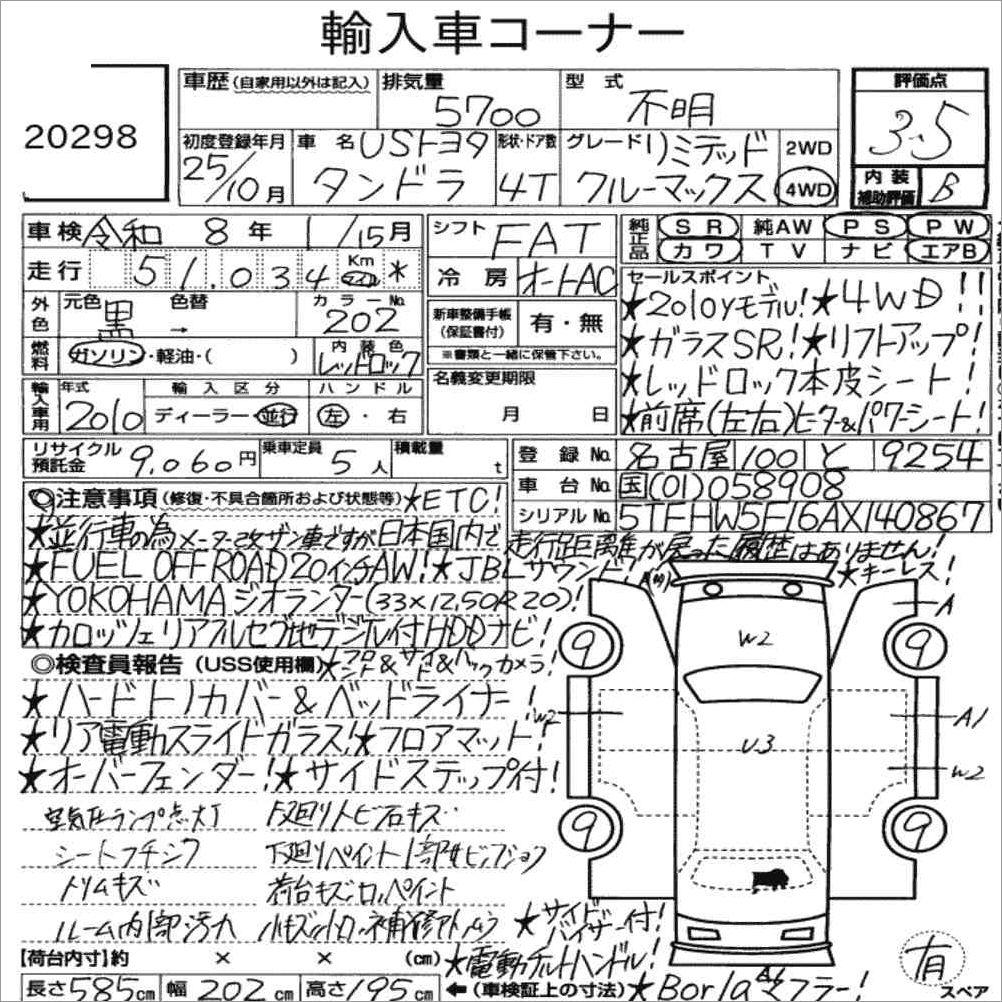 輸入車コーナー
20298
車歴(自家用以外は記入) 排気量 5700 型式 不明 評価点 3.5
初度登録年月 25/10月 車名 USトヨタ タンドラ 形状・ドア数 4T グレード リミテッド クルーマックス 2WD 4WD 内装補助評価 B
車検 令和 8年 1/15月 シフト FAT 純正品 SR 純AW PS PW
カワ TV ナビ エアB
走行 51.034 Km マイル * 冷房 オートAC
外色 元色 黒 色替 → カラーNo. 202
新車整備手帳(保証書付) 有・無
※書類と一緒に保管下さい。
燃料 ガソリン・軽油・( ) 内装色 レッドロック
セールスポイント
★2010yモデル!★4WD!!
★ガラスSR!★リフトアップ!
★レッドロック本皮シート!
★前席(左右)ヒーター&パワーシート!
輸入車用 年式 2010 輸入区分 ディーラー・並行 ハンドル 左・右
名義変更期限 月 日
リサイクル預託金 9,060円 乗車定員 5人 積載量 t
登録No. 名古屋 100 と 9254
車台No. 国(01)058908
シリアルNo. 5TFHW5F16AX140867
◎注意事項(修復・不具合箇所および状態等)★ETC!
★並行車の為メーター改ザン車ですが日本国内で走行距離が戻った履歴はありません!
★FUEL OFFROAD20インチAW!★JBLサウンド!★キーレス!
★YOKOHAMAジオランダー(33×12.50R20)!
★カロッツェリアフルセグ地デジ付HDDナビ!
◎検査員報告(USS使用欄)★フロント&サイド&バックカメラ!
★ハードトノカバー&ベッドライナー!
★リア電動スライドガラス!★フロアマット
★オーバーフェンダー!★サイドステップ付!
空気圧ランプ点灯 下廻りトビ石キズ
シートフチジワ 下廻りペイント1部
トリムキズ 荷台キズ ペイント
ルーム内部汚れ
★サイドバイザー付!
★電動チルトハンドル!
★Borlaマフラー!
【荷台内寸】約 × × (cm)
長さ585cm 幅202cm 高さ195cm ←(車検証上の寸法)
A
W2
9
9
W2
U3
A1
W2
9
9
有
スペア